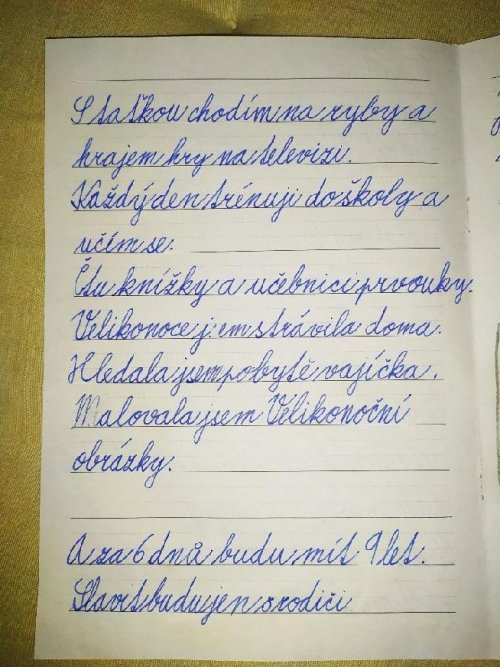 S taškou chodím na ryby a
hrajem hry na televizi.
Každý den trénuji do školy a
učím se.
Čtu knížky a učebnici prvouky.
Velikonoce jem strávila doma.
Hledala jsem po bytě vajíčka.
Malovala jsem Velikonoční
obrázky.
A za 6 dnů budu mít 9 let.
Slavit budu jen s rodiči